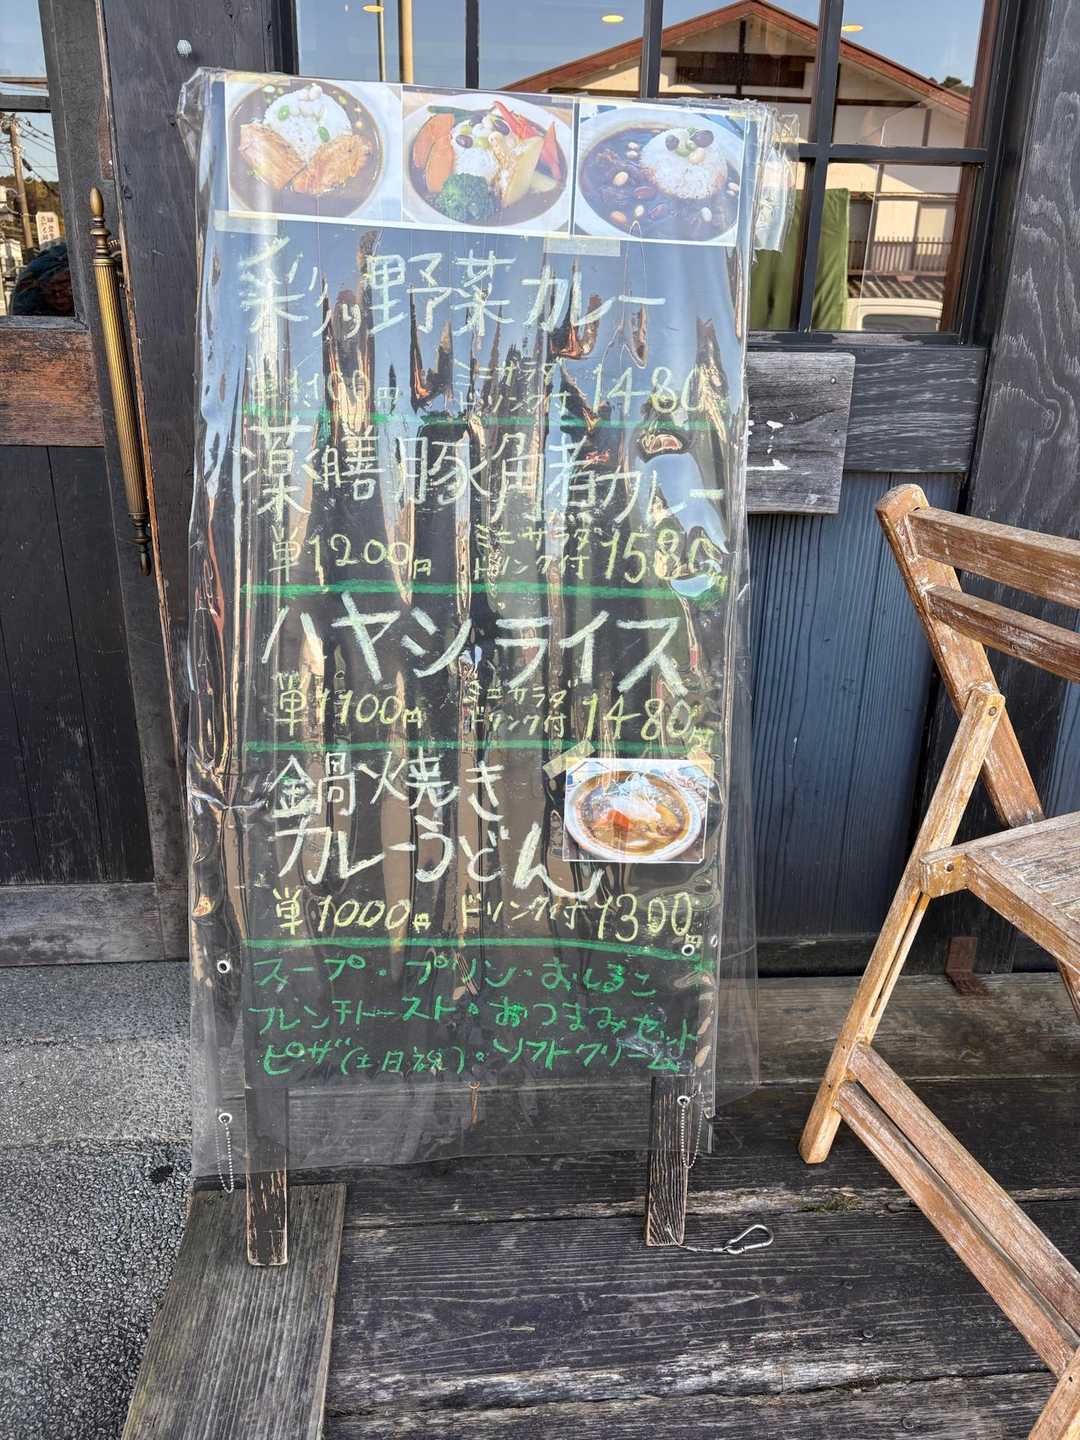 彩り野菜カレー
単1100円 ミニサラダ ドリンク付 1480円
薬膳豚角煮カレー
単1200円 ミニサラダ ドリンク付 1580円
ハヤシライス
単1100円 ミニサラダ ドリンク付 1480円
鍋焼き
カレーうどん
単1000円 ドリンク付 1300円
スープ・プリン・おしるこ
フレンチトースト・おつまみセット
ピザ(土日祝)・ソフトクリーム